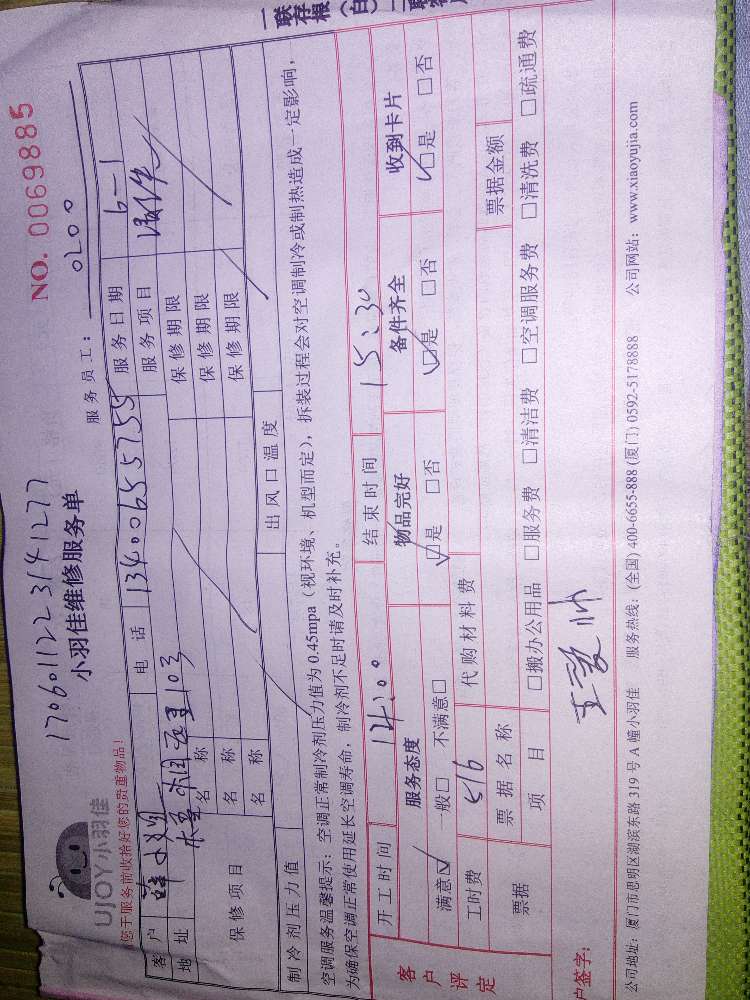 一联存根（白）二联客户
NO. 0069885
17060112231 41277
UJOY小羽佳
小羽佳维修服务单
您于服务前收拾好您的贵重物品！
服务员工： 0200
客户 电话 13400655755 服务日期 6-1
地址 103 服务项目
保修项目 名称 保修期限
名称 保修期限
名称 保修期限
制冷剂压力值 出风口温度
空调服务温馨提示：空调正常制冷剂压力值为 0.45mpa（视环境、机型而定），拆装过程会对空调制冷或制热造成一定影响，
为确保空调正常使用延长空调寿命，制冷剂不足时请及时补充。
开工时间 14:00 结束时间 15:30
客户评定 服务态度 物品完好 备件齐全 收到卡片
满意□ 一般□ 不满意□ □是 □否 □是 □否 □是 □否
工时费 516 代购材料费
票据 票据名称 票据金额
项目 □搬办公用品 □服务费 □清洁费 □空调服务费 □清洗费 □疏通费
户签字：
公司地址：厦门市思明区湖滨东路 319 号 A 幢小羽佳 服务热线：(全国) 400-6655-888 (厦门) 0592-5178888 公司网站：www.xiaoyujia.com